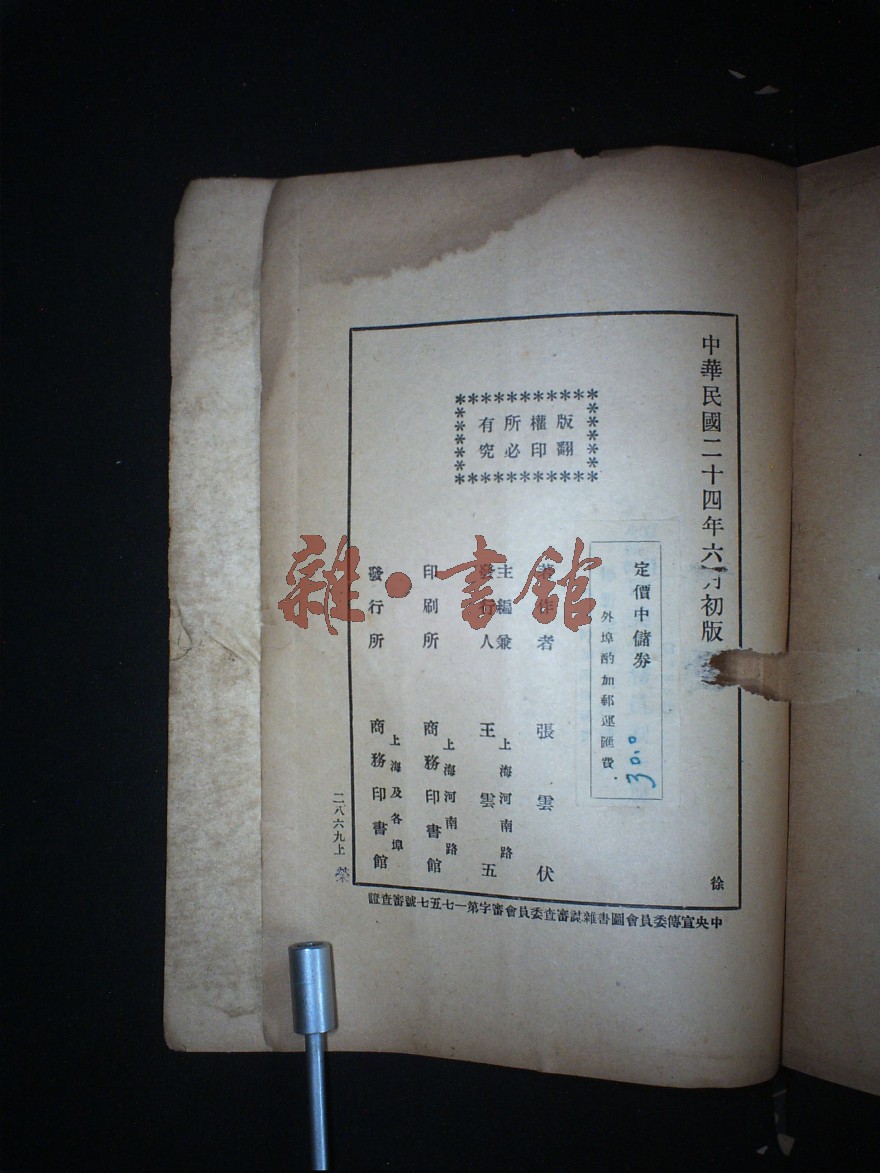 中華民國二十四年六月初版
徐
定價中儲劵
外埠酌加郵運匯費
30.0
版權所有
翻印必究
著作者 張雲伏
主編兼
發行人 王雲五
上海河南路
印刷所 商務印書館
上海河南路
發行所 商務印書館
上海及各埠
二八六九上
榮
中央宣傳委員會圖書雜誌審查委員會審字第一七五七號審查證
雜·書館